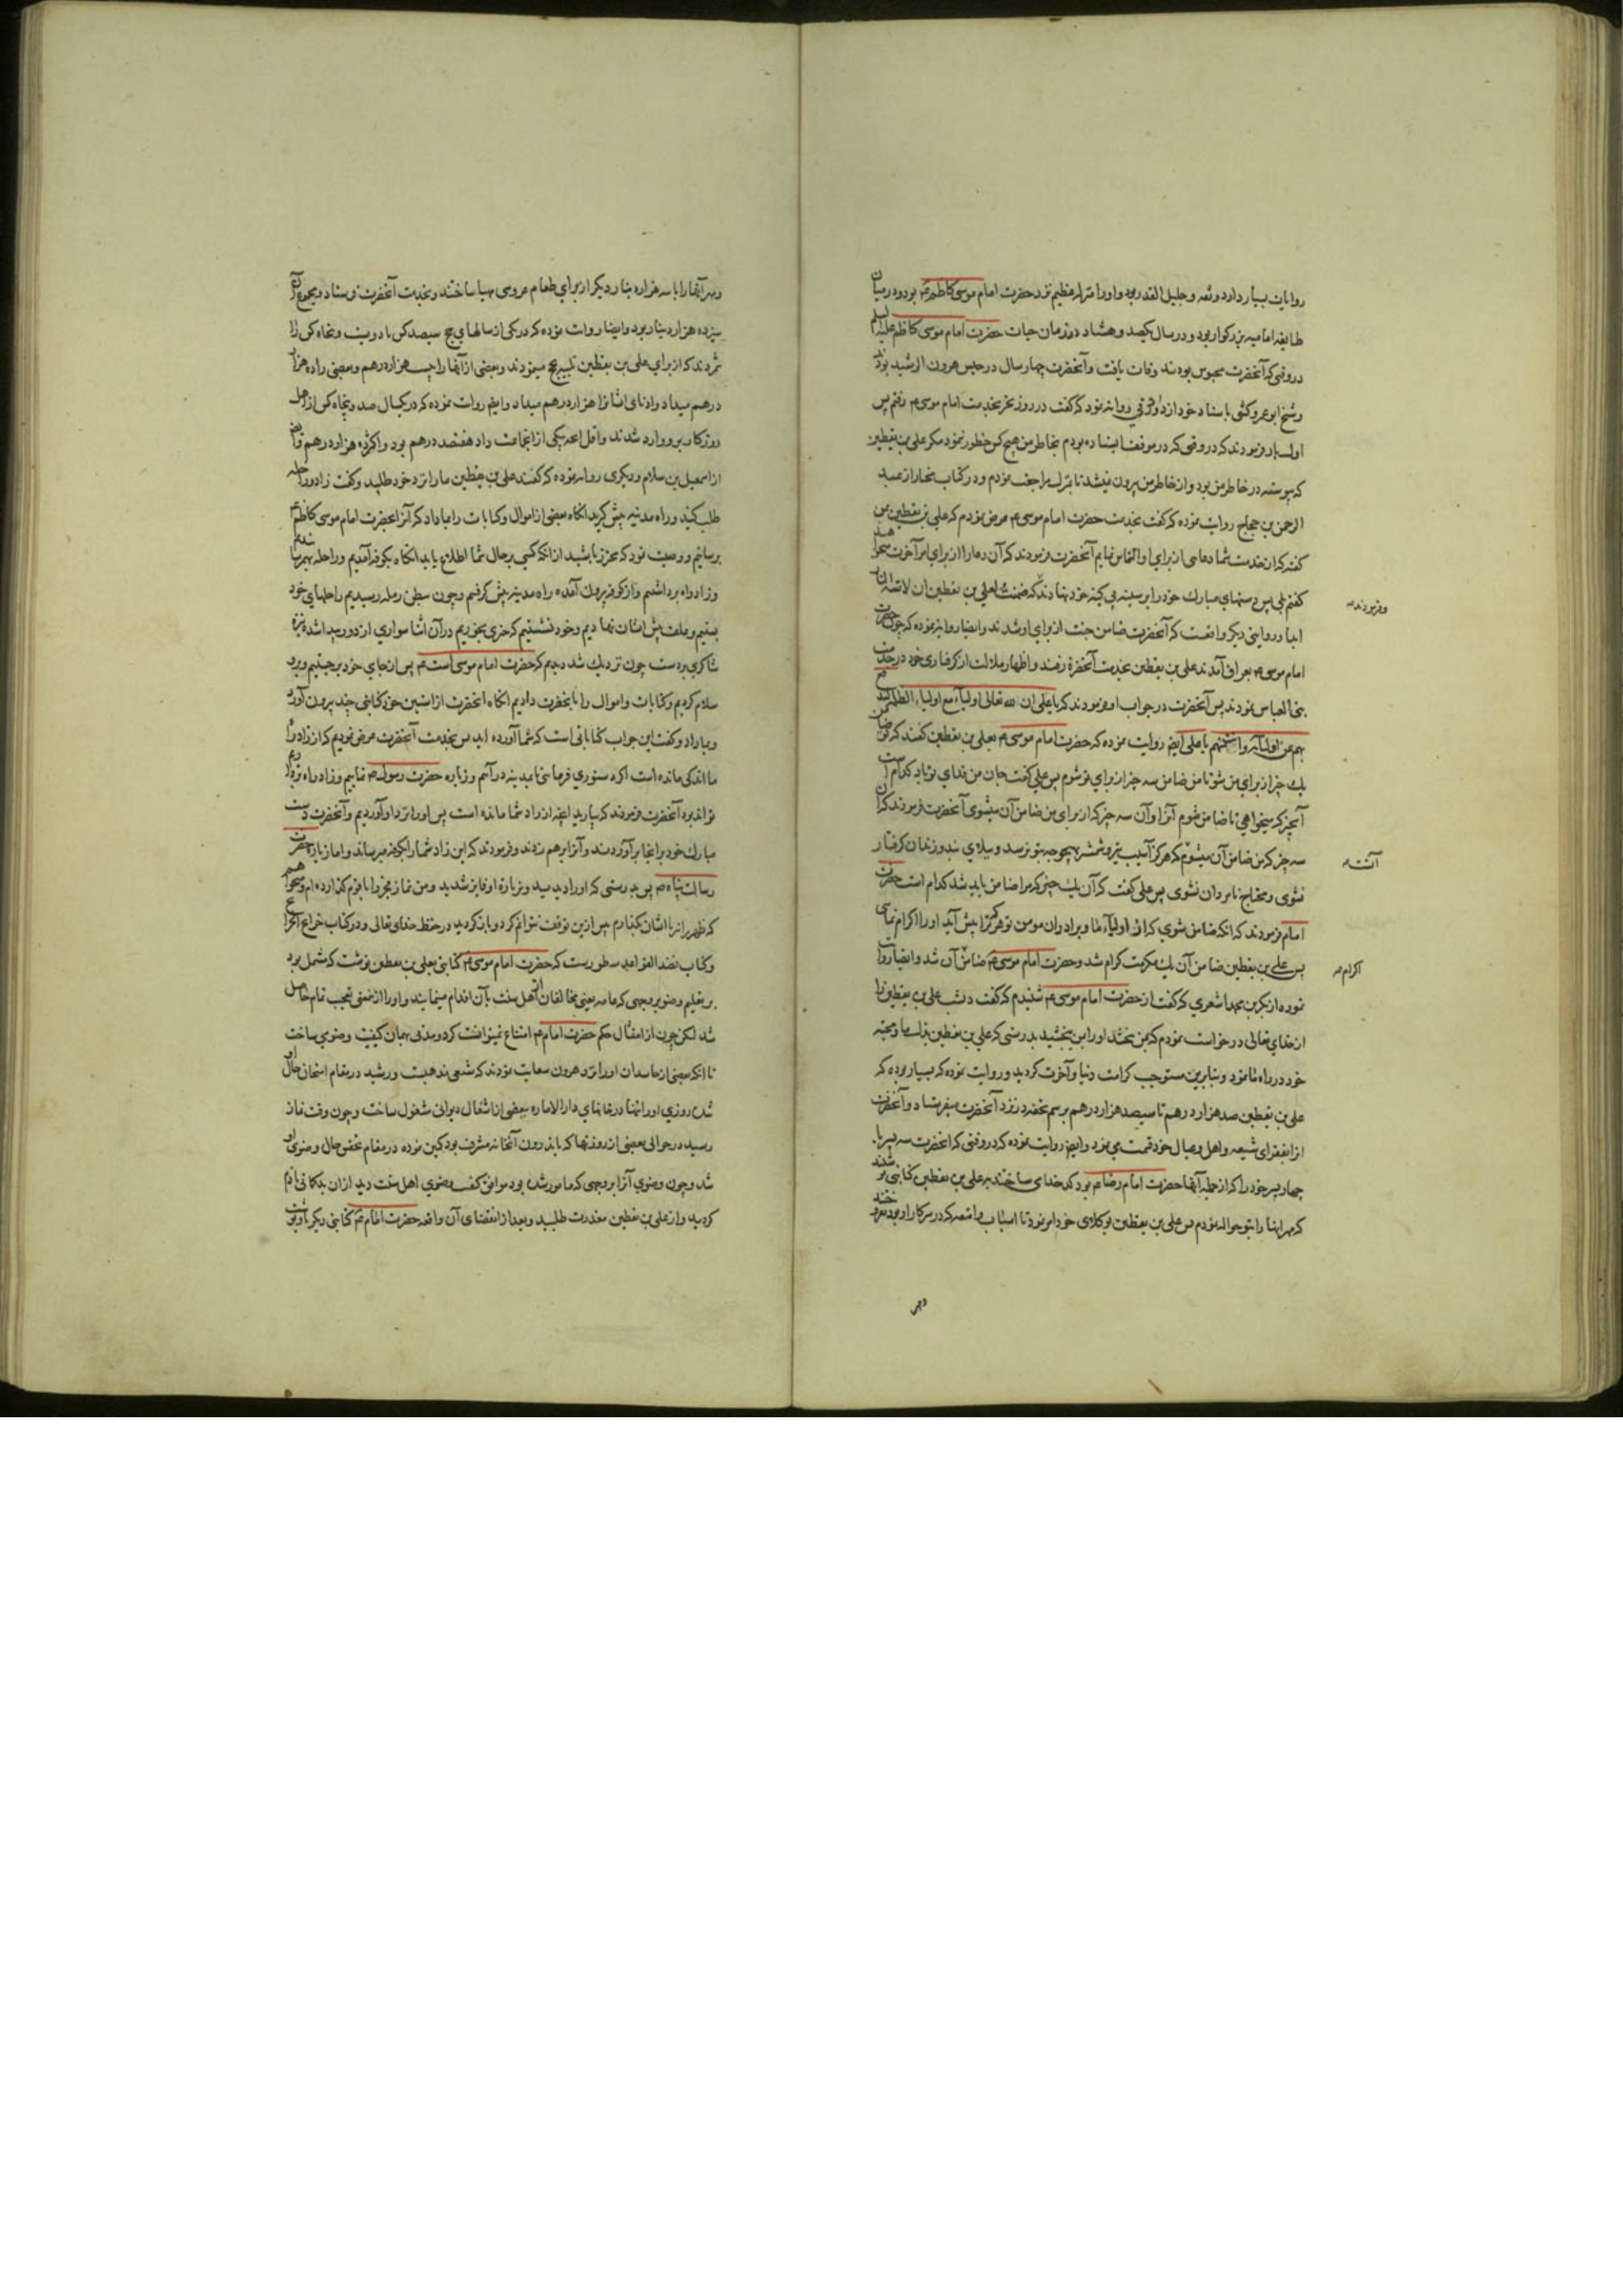 روایات بسیار دارد و ثقه و جلیل القدر بود و او را منزله عظیم نزد حضرت امام موسی کاظم ع بود و در میان
طایفه امامیه بزرگوار بود و در سال یکصد و هشتاد در زمان حیات حضرت امام موسی کاظم علیه السلم
در وقتی که آنحضرت محبوس بودند وفات یافت و آنحضرت چهار سال در حبس هرون الرشید بود
و شیخ ابو عمرو کشی باسناد خود از داود رقی روایة نمود که گفت در روز نحر بخدمت امام موسی ع رفتم پس
اول بار فرمودند که در وقتی که در موقف ایستاده بودم بخاطر من هیچ کس خطور ننمود مگر علی بن یقطین
که پیوسته در خاطر من بود و از خاطر من بیرون نمیشد تا بمنزل مراجعت نمودم و در کتاب مختار از عبد
الرحمن بن حجاج روایت نموده که گفت بخدمت حضرت امام موسی ع عرض نمودم که علی بن یقطین بمن
گفته که از خدمت شما دعایی از برای او التماس نمایم آنحضرت فرمودند که آن دعا را از برای امر آخرت میخواهد
گفتم بلی پس دستهای مبارک خود را بر سینه بی کینه خود نهادند که ضمنت لعلی بن یقطین ان لا تمسه النار
و فرمودند
ابدا و در روایتی دیگر واقعست که آنحضرت ضامن جنت از برای او شدند و ایضا روایة نموده که چون حضرت
امام موسی ع بعراق آمدند علی بن یقطین بخدمت آنحضرة رفتند و اظهار ملالت از گرفتاری خود در خدمت
بنی العباس نمودند پس آنحضرت در جواب او فرمودند که یا علی ان الله تعالی اولیآء مع اولیاء الظلمة لیدفع
بهم عن اولیآئه و انت منهم یا علی ایض روایت نموده که حضرت امام موسی ع بعلی بن یقطین گفتند که تو ضامن
یک چیز از برای من شو تا من ضامن سه چیز از برای تو شوم پس علی گفت جان من فدای تو باد کدام است
آنچیز که میخواهی تا ضامن شوم آنرا و آن سه چیز که از برای من ضامن آن میشوی آنحضرت فرمودند که آن
سه چیز که من ضامن آن میشوم که هرگز آسیب تیزی شمشیر بهیچوجه بتو نرسد و ببلای بند و زندان گرفتار
آنسته
نشوی و محتاج نامردان نشوی پس علی گفت که آن یک چیز که مرا ضامن باید شد کدام است حضرت
امام فرمودند که آنکه ضامن شوی که از اولیآء ما و برادران مومن تو هرکرا پیش آید او را اکرام نمائی
پس علی بن یقطین ضامن آن یک مکرمت کرام شد و حضرت امام موسی ع ضامن آن شد و ایضا روایت
اکرام
نموده از بکر بن محمد اشعری که گفت از حضرت امام موسی ع شنیدم که گفت دیشب علی بن یقطین را
از خدای تعالی درخواست نمودم که بمن بخشد او را بمن بخشید بدرستی که علی بن یقطین بذل مال و محبة
خود در راه ما نمود و بنابرین مستوجب کرامت دنیا و آخرت گردید و روایت نموده که بسیار بوده که
علی بن یقطین صد هزار درهم تا سیصد هزار درهم برسم تحفه در نزد آنحضرت میفرستاد و آنحضرت
از آنبفقرای شیعه و اهل و عیال خود قسمت می نمود و ایض روایت نموده که در وقتی که آنحضرت سه پسر یا
چهار پسر خود را که از جمله آنها حضرت امام رضا ع بود کدخدای ساختند بعلی بن یقطین کتابتی نوشتند
که مهر اینها را بتو حواله نمودم پس علی بن یقطین بوکلای خود امر نمود تا اسباب و امتعه که در سرکار او بود بفروختند
ومهر
ومهر آنها را با سه هزار دینار دیگر از برای طعام عروسی مهیا ساختند و بخدمت آنحضرت فرستاد و مجموع آن
سیزده هزار دینار بود و ایضا روایت نموده که در یکی از سالهای حج سیصد کس یا دویست و پنجاه کس را
شمردند که از برای علی بن یقطین تلبیه حج مینمودند و بعضی از آنها را بیست هزار درهم و بعضی را ده هزار
درهم میداد و ادنای ایشانرا هزار درهم میداد و ایض روایت نموده که در یکسال صد و پنجاه کس از اهل
روزگار برو وارد شدند و اقل آنچه بیکی از آنجماعت داد هفتصد درهم بود و اکثرش ده هزار درهم و ایض
از اسمعیل بن سلام و دیگری روایة نموده که گفتند علی بن یقطین ما را نزد خود طلبید و گفت زاد و راحله
طلب کنید و راه مدینه پیش گیرید آنگاه بعضی از اموال و کتابات را بما داد که آنرا بحضرت امام موسی کاظم ع
برسانیم و وصیت نمود که محترز باشید از آنکه کسی بر حال شما اطلاع یابد آنگاه بکوفه آمدیم و راحله بهم رسانیدیم
و زاد راه برداشتیم و از کوفه بیرون آمده راه مدینه پیش گرفتیم و چون ببطن رمله رسیدیم راحلهای خود
ببستیم و علف پیش ایشان نهادیم و خود نشستیم که چیزی بخوریم در آن اثنا سواری از دور پیدا شد و نیزه
شاکری بردست چون نزدیک شد دیدیم که حضرت امام موسی است ع پس از جای خود برجستیم و برو
سلام کردیم و کتابات و اموال را بآنحضرت دادیم آنگاه آنحضرت از آستین خود کتابتی چند بیرون آورد
و بما داد و گفت این جواب کتاباتی است که شما آورده اید پس بخدمت آنحضرت عرض نمودیم که از زاد راه
ما اندکی مانده است اگر دستوری فرمائی بمدینه در آییم و زیاره حضرت رسول ص نماییم و زاد راه
توانیم برد آنحضرت فرمودند که بیارید آنچه از زاد شما مانده است پس او را نزد او آوردیم و آنحضرت دست
مبارک خود برانجا برآوردند و آنرا برهم زدند و فرمودند که این زاد شما را بکوفه میرساند و اما زیارة حضرت
رسالت پناه ص پس بدرستی که او را دیدید و بزیارة او فایز شدید و من نماز فجر را با قوم گذارده ام و میخواهم
که ظهر را نیز با ایشان بگذارم پس ازین توقف نتوانم کرد و بازگردید در حفظ خدای تعالی و در کتاب خرایج الجرایح
و کتاب نضد القواعد مسطوریست که حضرت امام موسی ع کتابتی بعلی بن یقطین نوشت که مشتمل بود
بر تعلیم وضو بروجهی که عامه یعنی مخالفان از اهل سنت بآن اقدام مینمایند و او را از معنی تعجب تمام حاصل
شد لکن چون از امتثال حکم حضرت امام ع امتناع نمیتوانست کرد و مدتی بهمان کیفیت وضوی ساخت
تا آنکه بعضی از حاسدان او را نزد هرون سعایت نمودند که شیعی مذهبست و رشید در مقام امتحان حال او
شد روزی او را تنها در خانهای دارالاماره ببعضی از اشغال دیوانی مشغول ساخت و چون وقت نماز
رسید در حوالی بعضی از روزنها که باندرون آنخانه مشرف بود کمین نموده در مقام تفحص حال وضوی او
شد و چون وضوی آنرا بروجهی که مامور شده بود موافق کیفیت وضوی اهل سنت دید از آن بدگمانی نادم
گردید و از علی بن یقطین معذرت طلبید و بعد از انقضای آن واقعه حضرت امام ع کتابتی دیگر باو نوشت